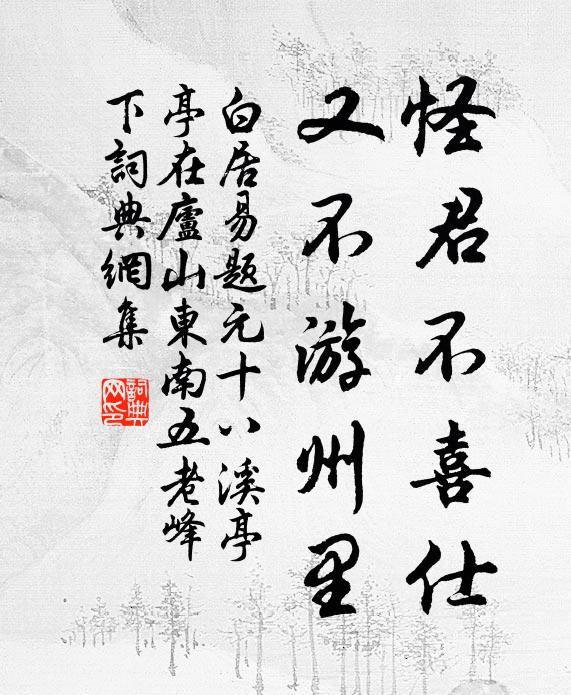 怪君不喜仕
又不游州里
白居易题元十八溪亭
亭在廬山東南五老峰
下詞典網集
詞典网印